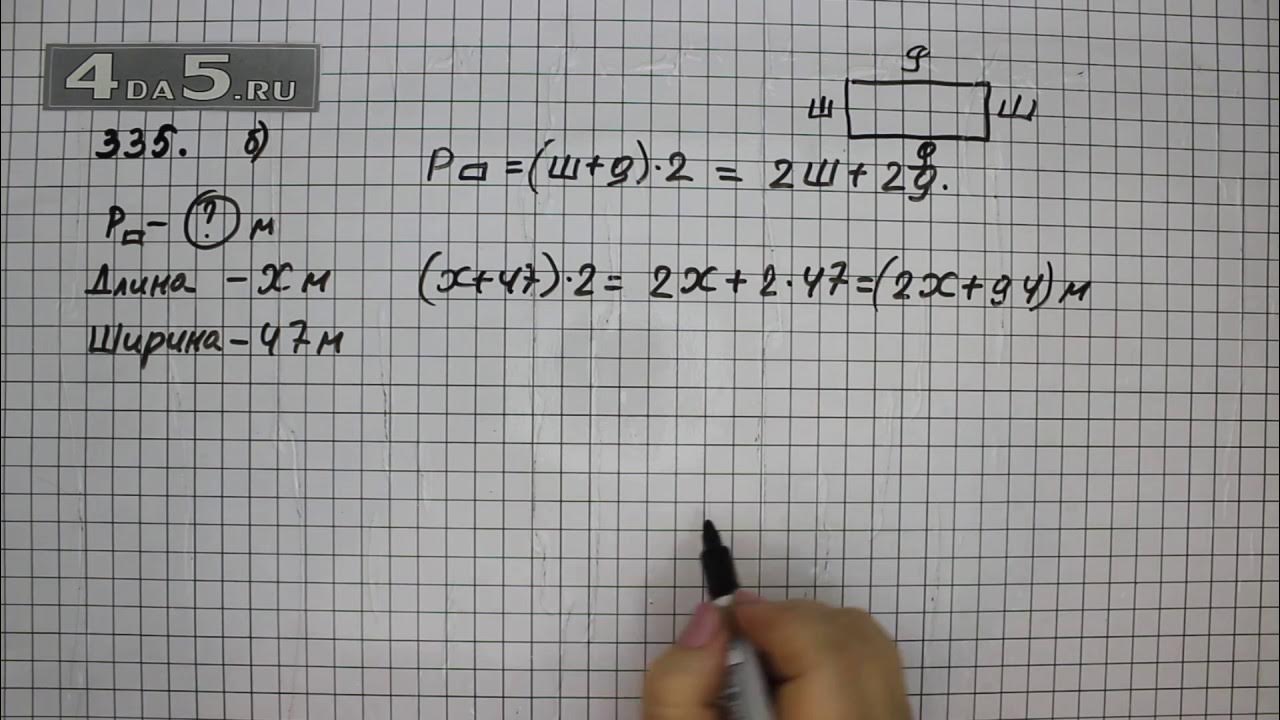 4DA5.RU
335. б)
д
ш ш
д
P▭ = (ш+д)·2 = 2ш + 2д.
P▭ – ? м
Длина – x м
(x+47)·2 = 2x + 2·47 = (2x+94) м
Ширина – 47 м